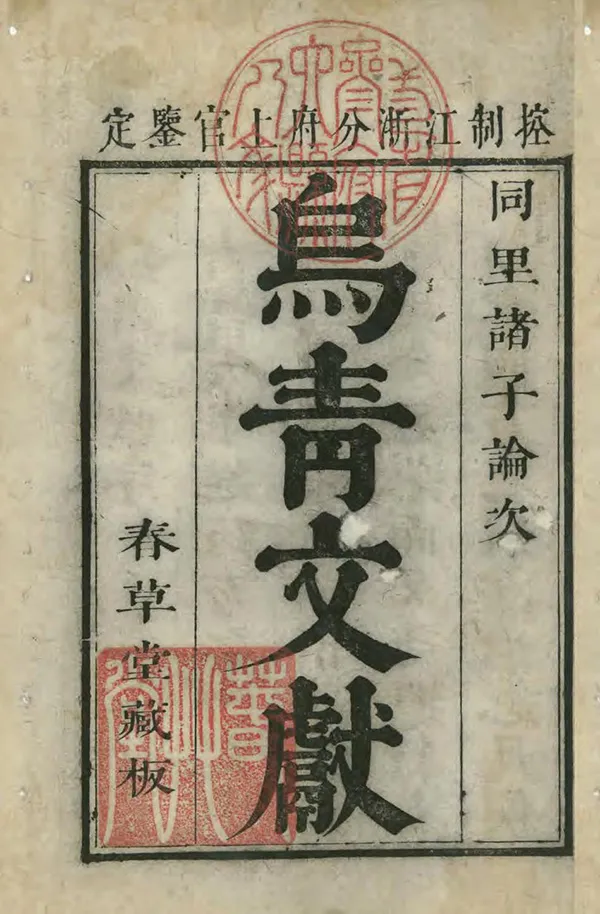 控制江浙分府上官鑒定
同里諸子論次
烏青文獻
春草堂藏板